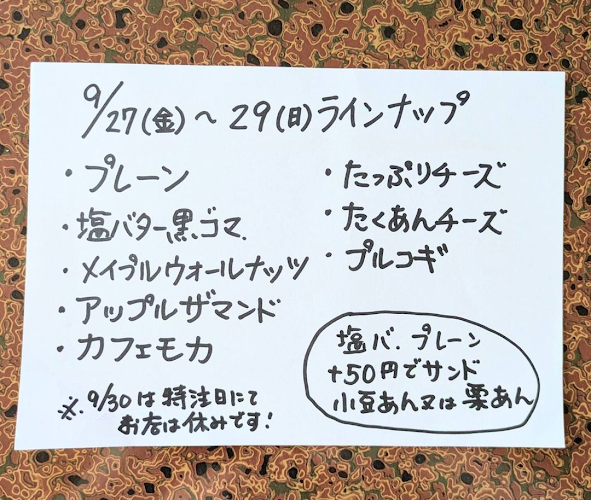 9/27(金)〜29(日)ラインナップ
・プレーン
・塩バター黒ゴマ
・メイプルウォールナッツ
・アップルザマンド
・カフェモカ
・たっぷりチーズ
・たくあんチーズ
・プルコギ
塩バ.プレーン
+50円でサンド
小豆あん又は栗あん
※.9/30は特注日にて
お店は休みです!